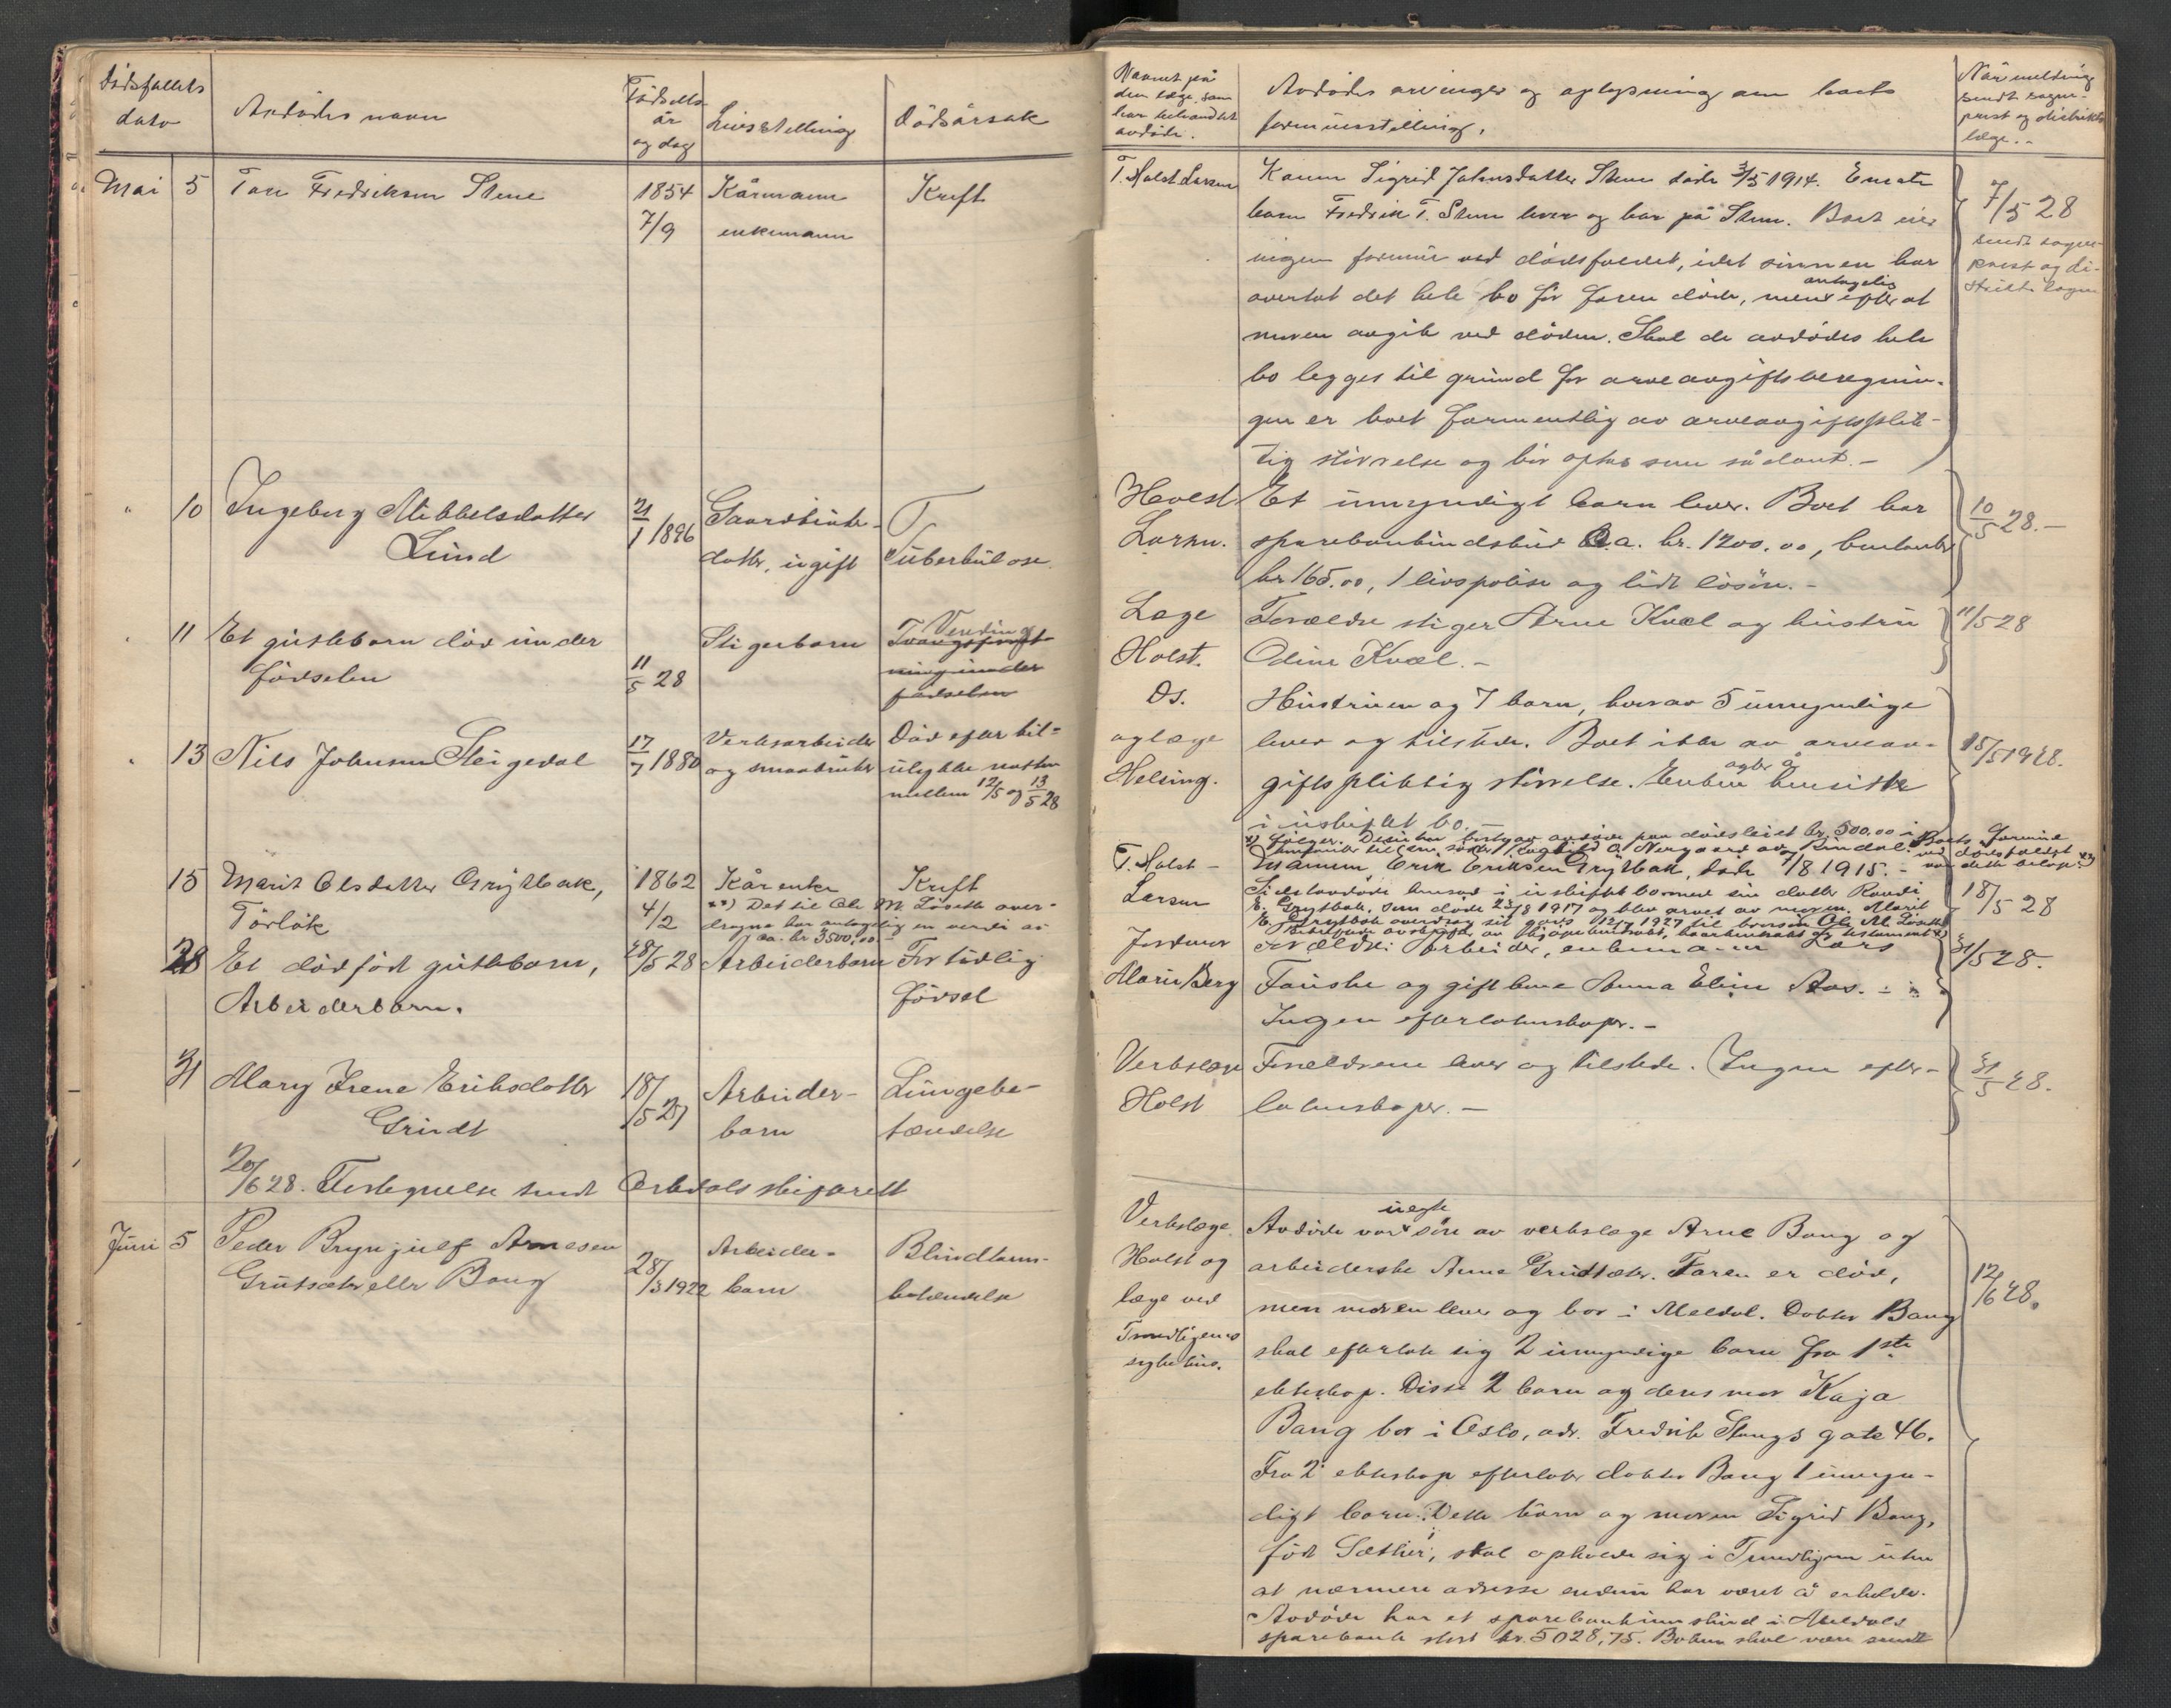 Dødsfallets
dato
Avdødes navn
Fødsels-
år
og dag
Livsstilling
Dødsårsak
Mai 5 Tore Fredriksen Stene 1854 Kårmann Kreft
7/9 enkemann
" 10 Ingeborg Mikkelsdatter 21/1 1896 Gaardbruker- T
Lund datter, ugift Tuberkulose.
" 11 Et guttebarn død under Stigerbarn Vending
fødselen 11/5 28 ning under
fødselen
" 13 Nils Johnsen Steigedal 17/7 1880 Verksarbeider Død efter bil-
og smaabruker ulykke natten
mellem 12/5 og 13/5 28
15 Marit Olsdatter Grytbak, 1862 Kårenke Kreft
Torlok 4/2 xx) Det til Ole M. Løseth over-
dragne har antagelig en verdi av
ca. kr 3500,00
28 Et dødfødt guttebarn, 28/5 28 Arbeiderbarn For tidlig
Arbeiderbarn. fødsel
31 Mary Irene Eriksdatter 18/5 27 Arbeider- Lungebe-
Grindt barn tændelse
20/6 28. Fortegnelse sendt Orkdals skifterett
Juni 5 Peder Brynjulf Arnesen 28/3 1922 Arbeider- Blindtarm-
Grutsæter eller Bang barn betændelse
Navnet på
den læge, som
har behandlet
avdøde.
Avdødes arvinger og oplysning om boets
formuesstilling.
Når melding
sendt sogne-
prest og distrikts
læge.
T. Holst Larsen Konen Sigrid Johnsdatter Stene døde 3/5 1914. Eneste
barn Fredrik T. Stene lever og bor på Stene. Boet eier
ingen formue ved dødsfaldet, idet sønnen har
overtat det hele bo før faren døde, men antagelig efter at
moren avgik ved døden. Skal de avdødes hele
bo legges til grund for arveavgiftsberegnin-
gen er boet formentlig av arveavgiftsplik-
tig størrelse og bør optas som sådant.-
7/5 28
sendt sogne-
prest og di-
strikts lægen
Holst Et umyndigt barn lever. Boet har
Larsen. sparebankindskud ca. kr. 1200.00, kontanter
kr 165.00, 1 livspolise og lidt løsøre.-
10/5 28.-
Læge Forældre stiger Arne Kvæl og hustru 11/5 28
Holst. Odine Kvæl.-
Ds. Hustruen og 7 barn, hvorav 5 umyndige
og læge lever og tilstede. Boet ikke av arveav-
Helsing. giftspliktig størrelse. Enken agter å hensitte
i uskiftet bo.-
15/5 1928.
T. Holst- Mannen Erik Eriksen Grytbak, døde 7/8 1915.-
Larsen Sidstavdøde hensad i uskiftet bo med sin datter Randi
E. Grytbak, som døde 23/8 1917 og blev arvet av moren. Marit
E. Grytbak overdrog sit gods 12/2 1927 til brorsøn Ole M. Løseth
18/5 28
Jordmor Forældre: Arbeider, enkemann Lars
Marie Berg Fauske og gift kone Anna Elin Aas.-
Ingen efterlatenskaper.-
31/5 28.
Verkslæge Forældrene lever og tilstede. Ingen efter-
Holst latenskaper.-
31/5 28.
Verkslæge Avdøde var uegte søn av verkslæge Arne Bang og
Holst og arbeiderske Anne Grutsæter. Faren er død,
læge ved men moren lever og bor i Meldal. Doktor Bang
Trondhjems skal efterlate sig 2 umyndige barn fra 1ste
sykehus. ekteskap. Disse 2 barn og deres mor Kaja
Bang bor i Oslo, adr. Fredrik Stangs gate 46.
Fra 2. ekteskap efterlater doktor Bang 1 umyn-
digt barn. Dette barn og moren Sigrid Bang,
født Sæther, skal opholde sig i Trondhjem uten
at nærmere adresse endnu har været å erholde.
Avdøde har et sparebankinnskud i Meldals
sparebank stort kr. 5028,75. Boken skal være sendt
12/6 28.